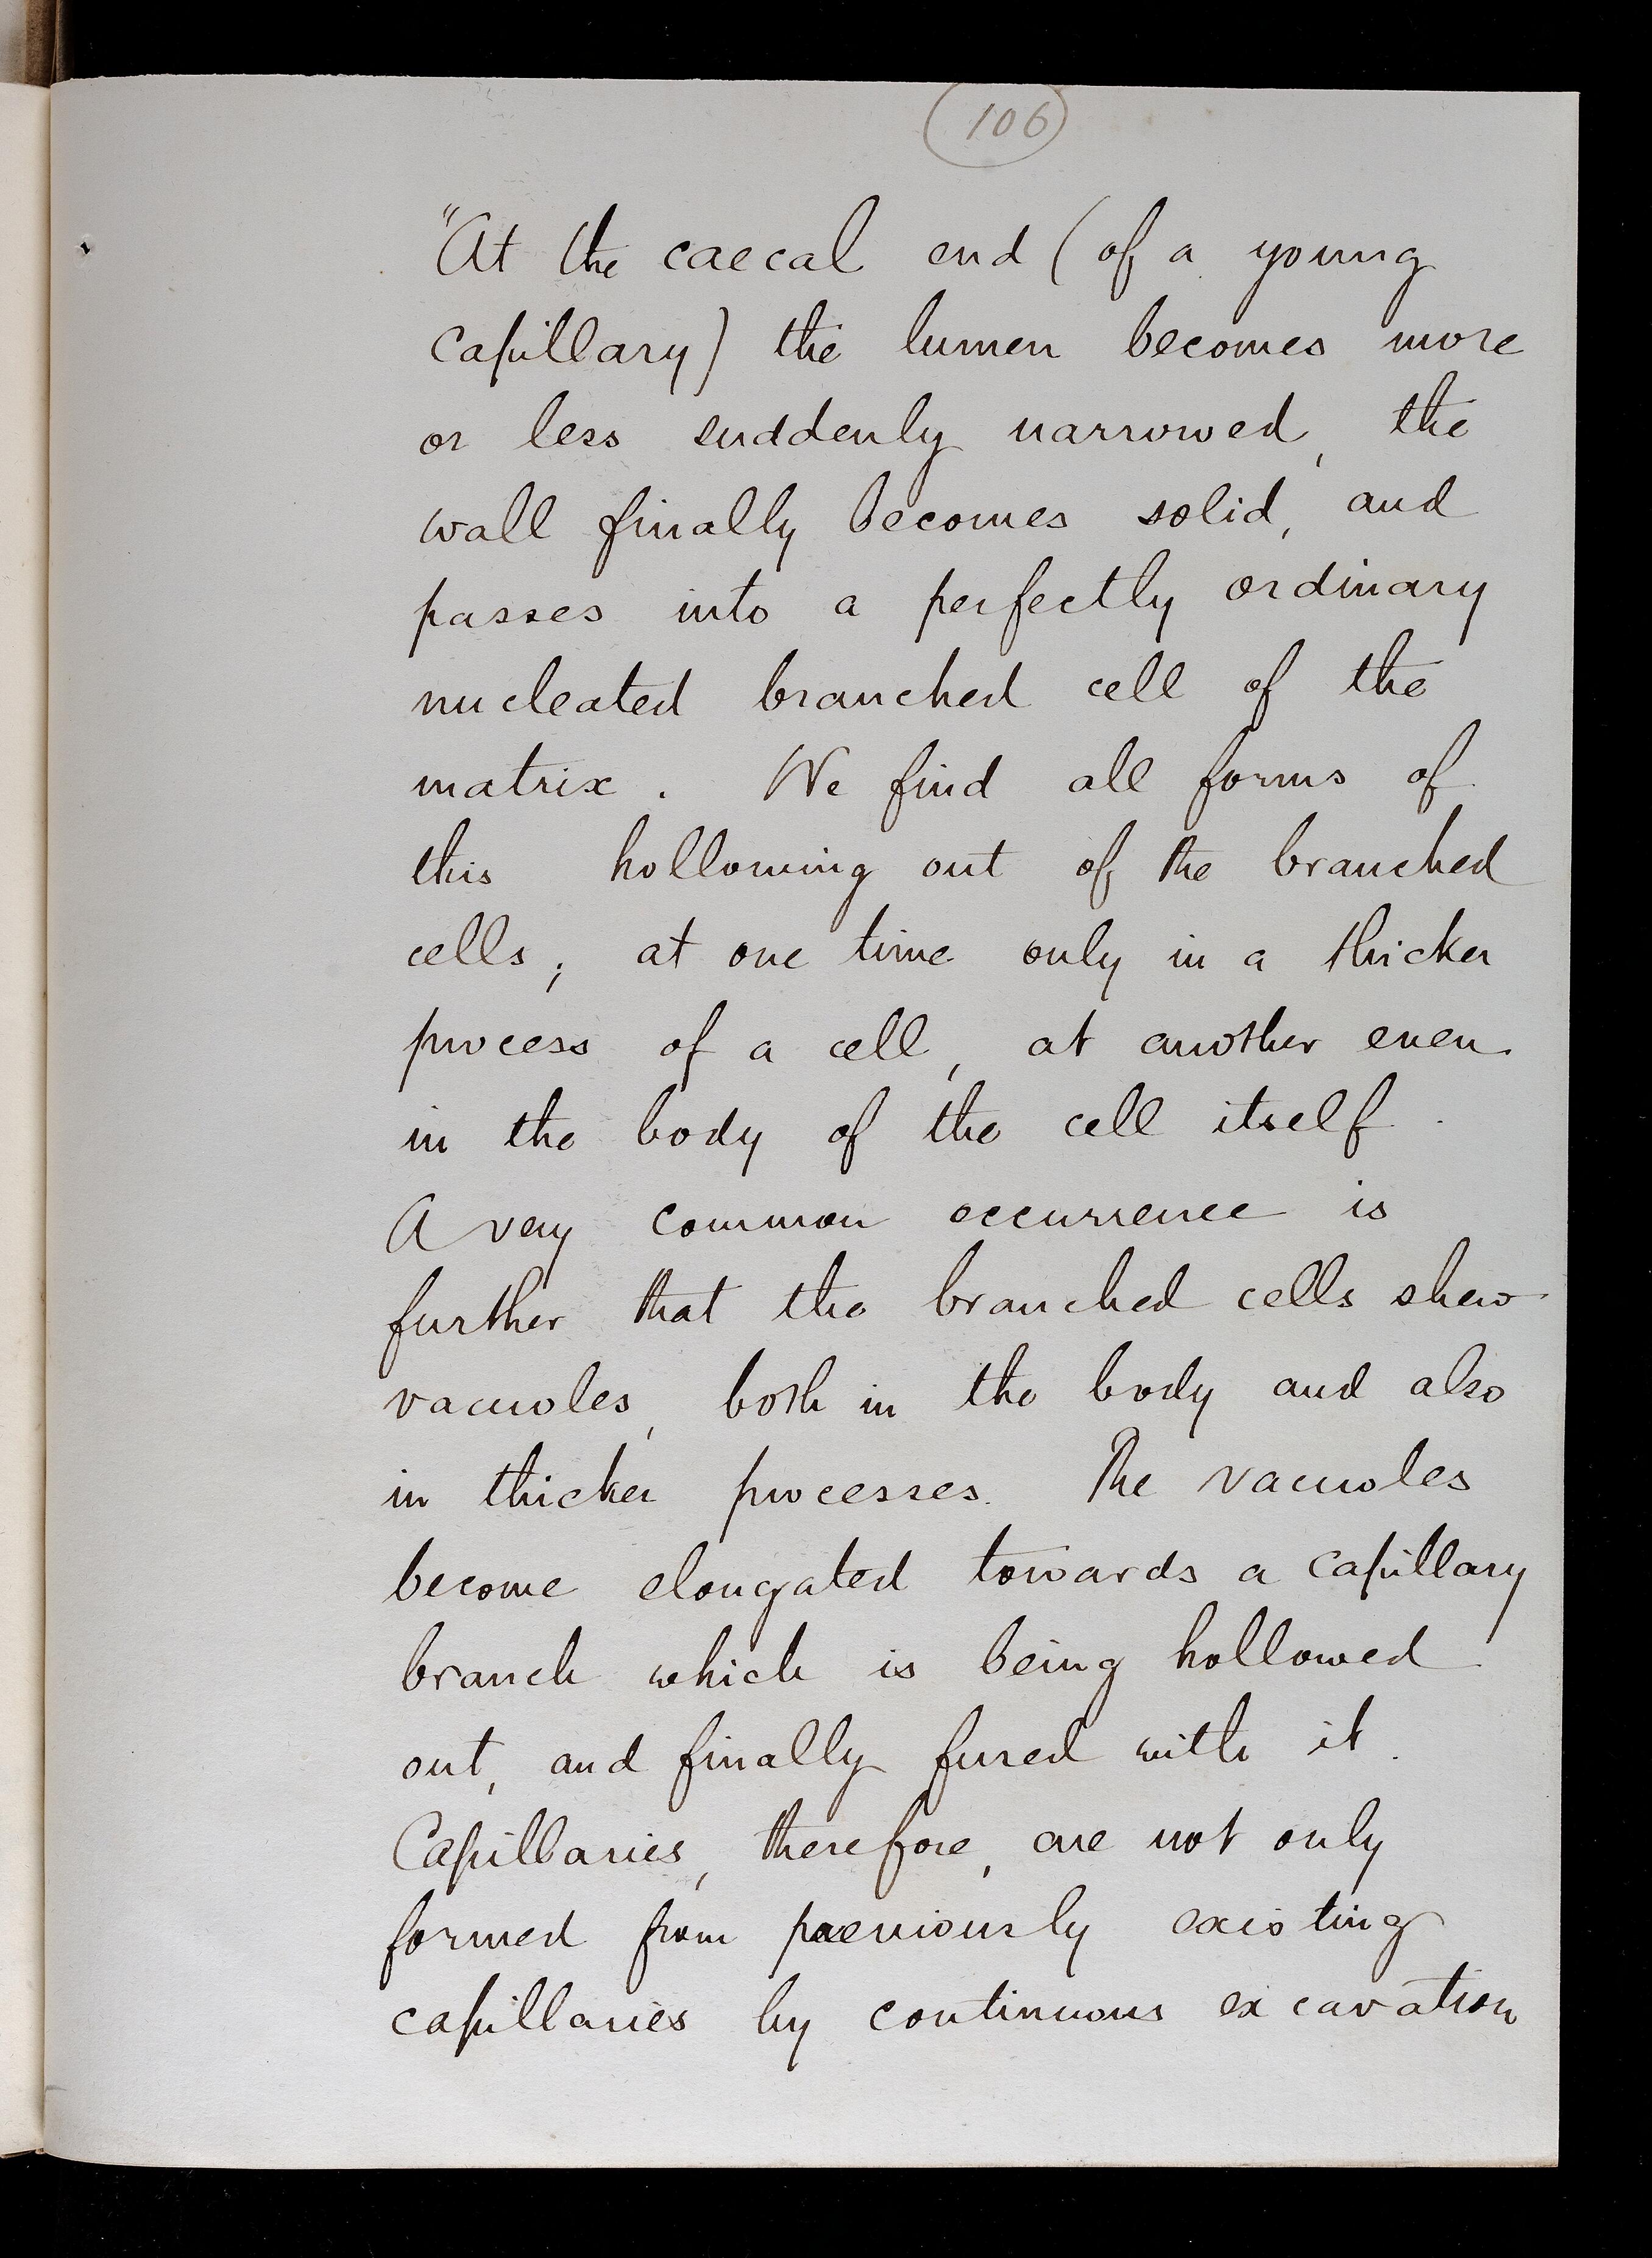 106
"At the caecal end (of a young
capillary) the lumen becomes more
or less suddenly narrowed, the
wall finally becomes solid, and
passes into a perfectly ordinary
nucleated branched cell of the
matrix. We find all forms of
this hollowing out of the branched
cells; at one time only in a thicker
process of a cell, at another even
in the body of the cell itself.
A very common occurrence is
further that the branched cells shew
vacuoles, both in the body and also
in thicker processes. The vacuoles
become elongated towards a capillary
branch which is being hollowed
out, and finally fused with it.
Capillaries, therefore, are not only
formed from praeviously existing
capillaries by continuous excavation